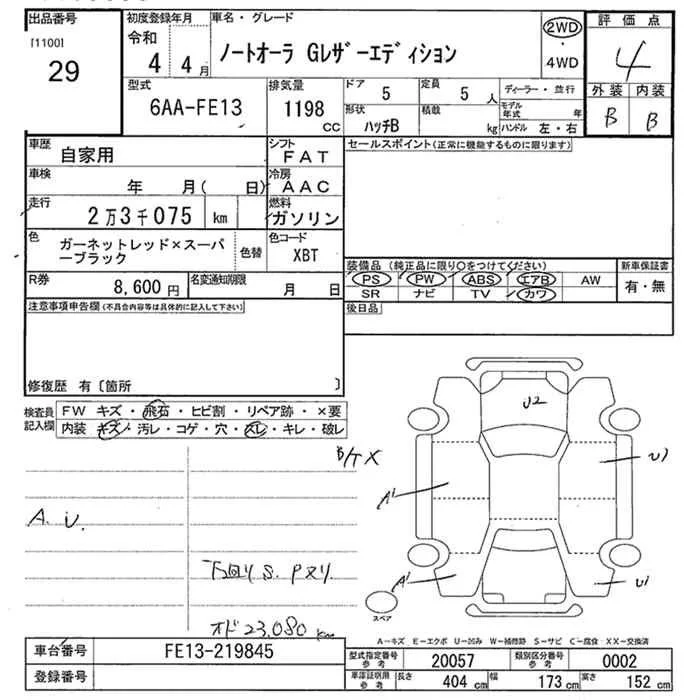 出品番号 初度登録年月 車名・グレード 評価点
[1100]
29
令和
4 4月
ノートオーラ Gレザーエディション
2WD
・
4WD
4
外装 内装
B B
型式 排気量 ドア 定員 ディーラー・並行
6AA-FE13 1198 cc 5 5人
形状 積載 モデル年式 年
ハッチB kg ハンドル 左・右
車歴 自家用 シフト FAT セールスポイント(正常に機能するものに限ります)
車検 年 月( 日) 冷房 AAC
走行 2万3千075 km 燃料 ガソリン
色 ガーネットレッド×スーパーブラック 色替 色コード XBT
装備品 (純正品に限り○をつけてください) 新車保証書
PS PW ABS エアB AW 有・無
SR ナビ TV カワ
R券 8,600円 名変通知期限 月 日
後日品
注意事項申告欄(不具合内容等は具体的に記入して下さい)
修復歴 有〔箇所 〕
検査員記入欄
FW キズ・飛石・ヒビ割・リペア跡・×要
内装 キズ・汚レ・コゲ・穴・スレ・キレ・破レ
A. U.
下回り S. Pヌリ.
オド 23,080 km
U2
A1
A1
U1
スペア
A-キズ E-エクボ U-凹み W-補修跡 S-サビ C-腐食 XX-交換済
車台番号 FE13-219845
登録番号
型式指定番号参考 20057 類別区分番号参考 0002
車庫証明用参考 長さ 404 cm 幅 173 cm 高さ 152 cm